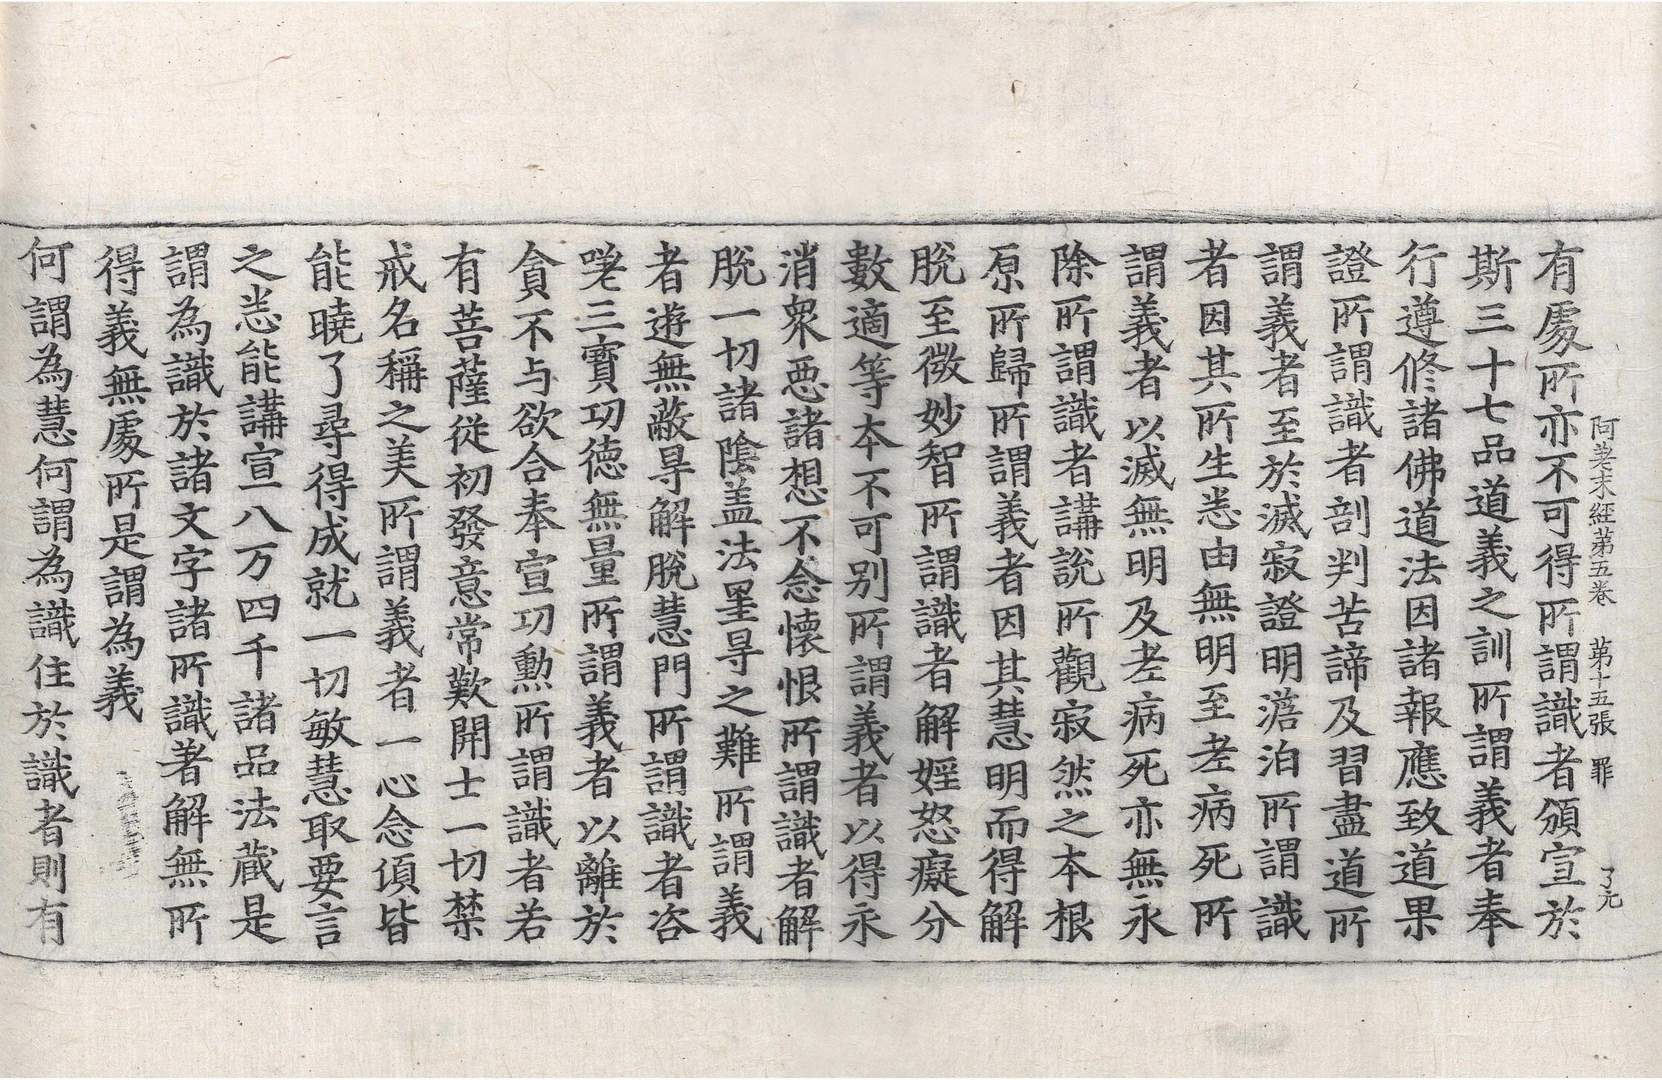 阿差末經第五卷　第十五張　罪　了元
有處所亦不可得所謂識者頒宣於
斯三十七品道義之訓所謂義者奉
行遵修諸佛道法因諸報應致道果
證所謂識者剖判苦諦及習盡道所
謂義者至於滅寂證明澹泊所謂識
者因其所生悉由無明至老病死所
謂義者以滅無明及老病死亦無永
除所謂識者講說所觀寂然之本根
原所歸所謂義者因其慧明而得解
脫至微妙智所謂識者解婬怒癡分
數適等本不可別所謂義者以得永
消衆惡諸想不念懷恨所謂識者解
脫一切諸陰盖法罣㝵之難所謂義
者遊無蔽㝵解脫慧門所謂識者咨
嗟三寶功德無量所謂義者以離於
貪不与欲合奉宣功勲所謂識者若
有菩薩從初發意常歎開士一切禁
戒名稱之美所謂義者一心念頃皆
能曉了尋得成就一切敏慧取要言
之悉能講宣八万四千諸品法藏是
謂為識於諸文字諸所識著解無所
得義無處所是謂為義
何謂為慧何謂為識住於識者則有